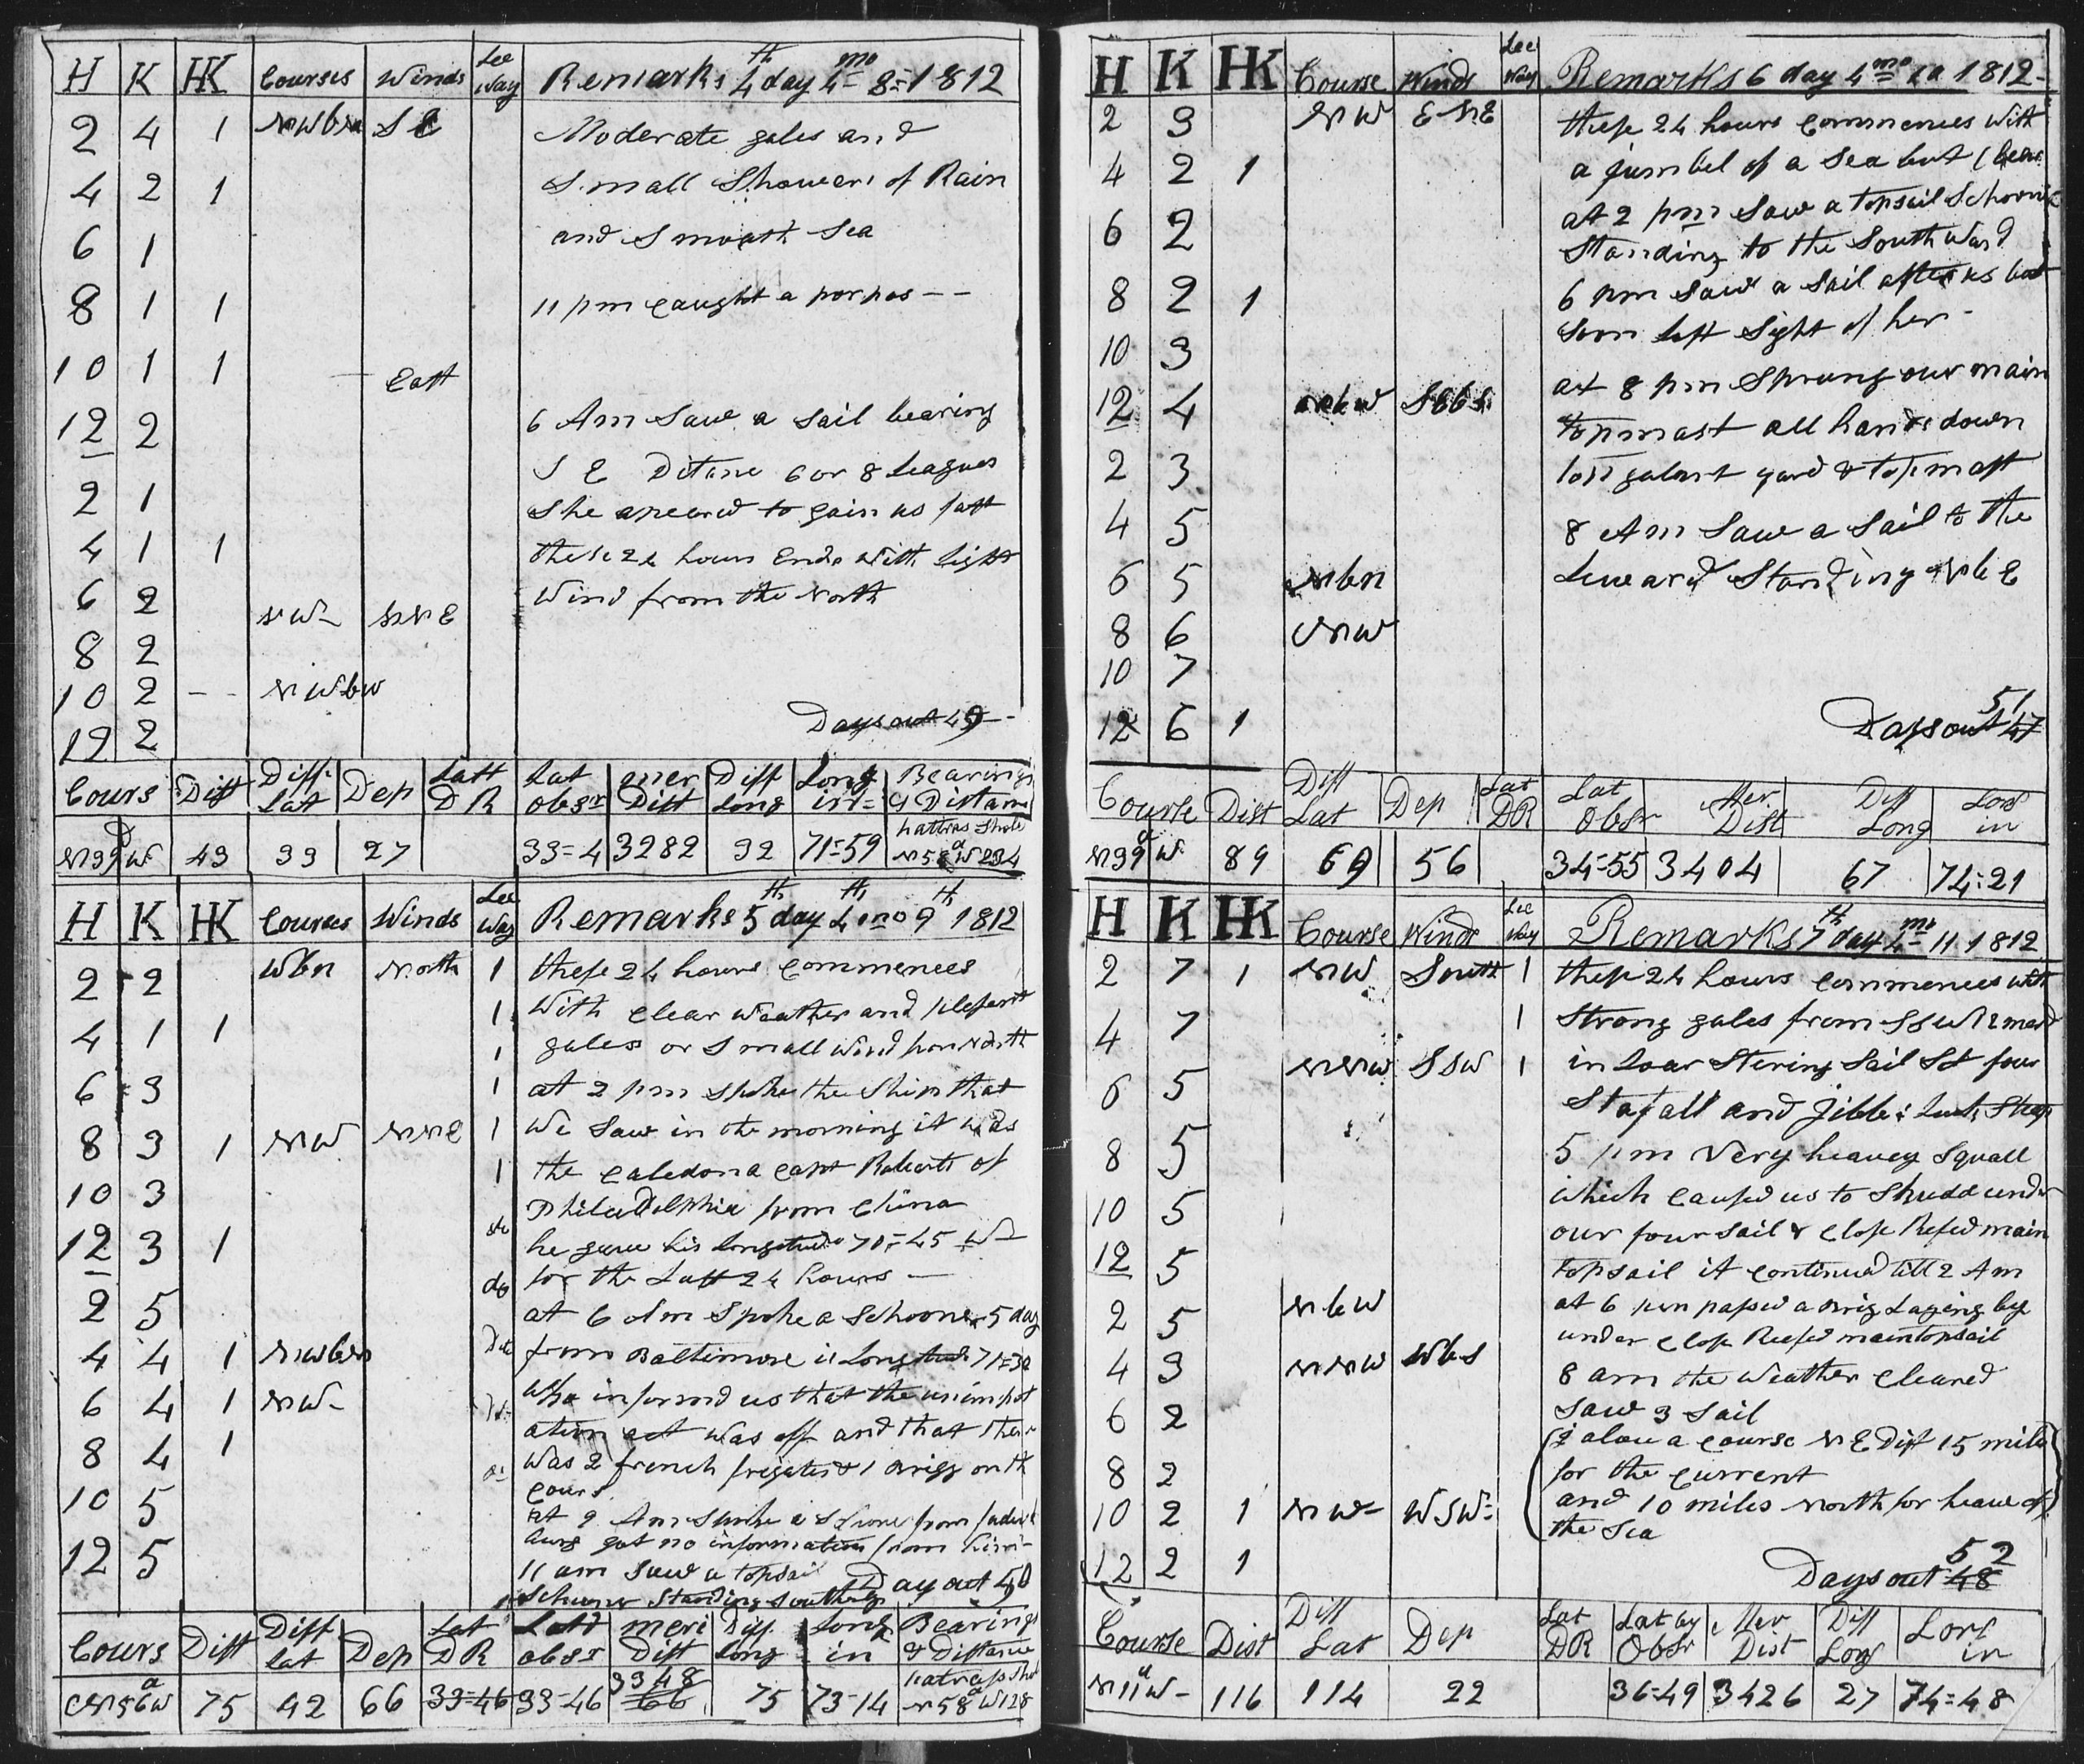 H K HK Courses Winds Lee Way Remarks 4th day 4mo 8= 1812
2 4 1 NWbN S E Moderate gales and
4 2 1 Small Showers of Rain
6 1 and Smooth Sea
8 1 1 11 pm caught a porpos - -
10 1 1 East
12 2 6 Am Saw a Sail bearing
S E Ditane 6 or 8 Leagues
2 1 She apeared to gain us fast
4 1 1 these 24 hours Ends With light
6 2 NW- NNE Wind from the North
8 2
10 2 - - NWbW
12 2 Days out 49 -
Cours Dist Diff Lat Dep Latt DR Lat obsr mer Dist Diff Long Long in= Bearings & Distane
N39dW 43 33 27 33=4 3282 32 71=59 hattras Shole N58dW 234
H K HK Courses Winds Lee Way Remarks 5th day 4th mo 9th 1812
2 2 WbN North 1 these 24 hours Commences
1 With clear Weather and plesent
4 1 1 1 gales or Small Wind from North
6 3 1 at 2 pm Spoke the Ship that
8 3 1 NW NNE 1 We Saw in the morning it was
1 the Caledona Capt Roberts of
10 3 Philadelphia from China
12 3 1 do he gave his Longitude 70=45 W-
do for the Last 24 hours -
2 5 at 6 Am Spoke a Schooner 5 day
4 4 1 NWbN Do from Baltimore in Longitude 71=30
6 4 1 NW- Do Who informd us that the unimport
ation act was off and that ther
8 4 1 Do Was 2 french frigates & 1 Brigg on th
Cours
10 5 at 9 Am Spoke a from
got no information from him -
12 5 11 am Saw a topsail Day out 50
Schuner Standing Southerly
Cours Dist Diff Lat Dep Lat DR Latt obsr meri Dist Diff Long Long in Bearings & Distane
N56dW 75 42 66 33=46 33=46 3348 66 75 73=14 hatrass Shol N58dW 128
H K HK Course Winds Lee Way Remarks 6 day 4mo 10 1812-
2 3 NW ENE these 24 hours Commences With
4 2 1 a jumbel of a Sea but Clear
at 2 pm Saw a topsail Schooner
6 2 Standing to the South Ward
8 2 1 6 pm Saw a Sail after us but
Soon left Sight of her -
10 3 at 8 pm Sprung our main
12 4 NbW SEbS topmast all hands down
2 3 galant yard & topmast
4 5 8 Am Saw a Sail to the
6 5 NbN Leward Standing NbE
8 6 NNW
10 7
12 6 1 Days out 47 51
Course Dist Diff Lat Dep Lat DR Lat Obsr Mer Dist Diff Long Long in
N39dW 89 69 56 34=55 3404 67 74=21
H K HK Course Winds Lee Way Remarks 7th day 4mo 11 1812
2 7 1 NW South 1 these 24 hours Commences with
4 7 1 Strong gales from SSW
6 5 NNW SSW 1 in Loar Stering Sail Set four
and Jibb
8 5 5 pm Very heavey Squall
10 5 Which Caused us to Skudd under
our four Sail & Close Refed main
12 5 topsail it Continued till 2 Am
2 5 NbW at 6 pm passed a Brig Laying by
under Close Reefed maintopsail
4 3 NNW WbS 8 am the Weather Cleared
6 2 Saw 3 Sail
I alow a Course NE Dist 15 miles
8 2 for the Current
10 2 1 NW- WSW= and 10 miles North for heave of
the Sea
12 2 1 Days out 48 52
Course Dist Diff Lat Dep Lat DR Lat by Obsr Mer Dist Diff Long Long in
N11dW- 116 114 22 36=49 3426 27 74=48